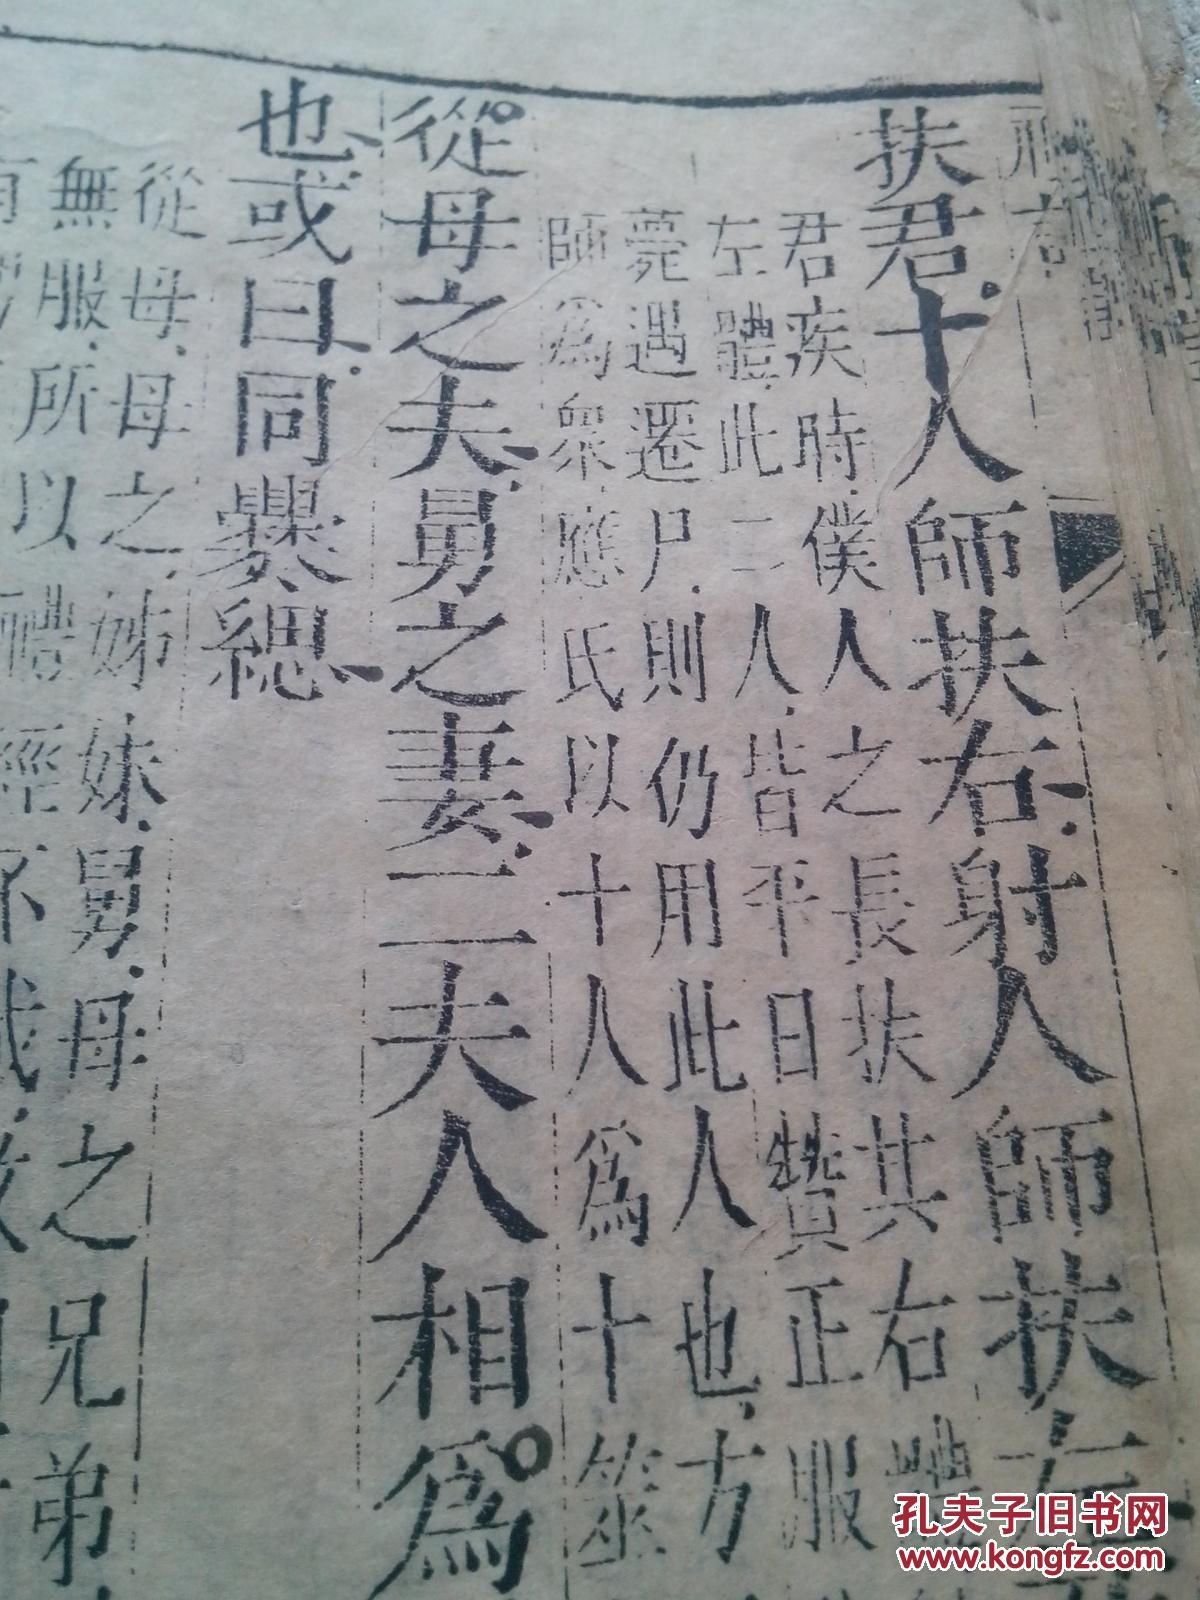 扶君十人師扶右射人師扶左
君疾時僕人之長扶共右體
左體此二人皆平日贊正服
薨遇遷尸則仍用此人也方
師爲衆應氏以十人爲十筮
從母之夫舅之妻二夫人相爲
也或曰同爨緦
從母母之姊妹舅母之兄弟
無服所以禮經不載故
孔夫子旧书网
www.kongfz.com